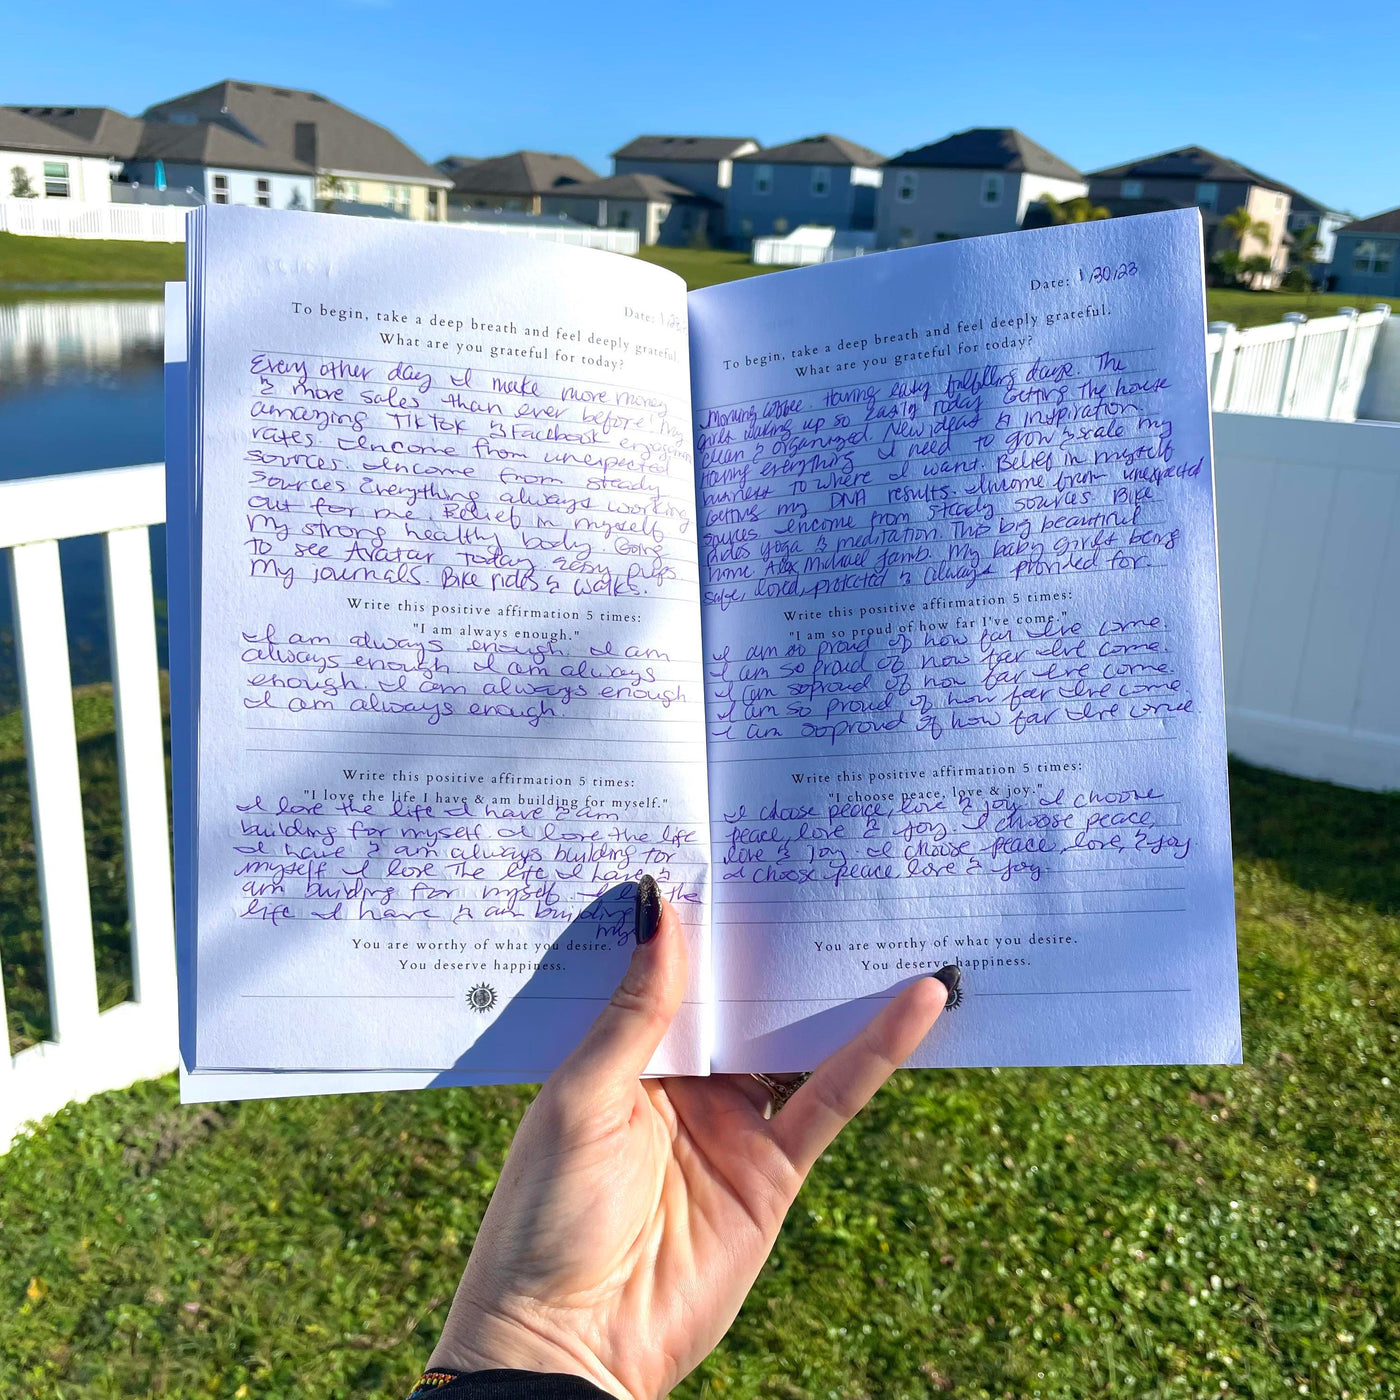 Date: 1/
To begin, take a deep breath and feel deeply grateful.
What are you grateful for today?
Every other day I make more money
& more sales than ever before! My
amazing TikTok & Facebook engagement
rates. Income from unexpected
sources. Income from steady
sources Everything always working
out for me. Belief in myself
My strong healthy body. Going
to see Avatar today
My journals. Bike rides & walks.
Write this positive affirmation 5 times:
"I am always enough."
I am always enough. I am
always enough I am always
enough. I am always enough
I am always enough.
Write this positive affirmation 5 times:
"I love the life I have & am building for myself."
I love the life I have & am
building for myself I love the life
I have & am always building for
myself I love the life I have &
am building for myself. I the
life I have & am building
my
You are worthy of what you desire.
You deserve happiness.
Date: 1/30/23
To begin, take a deep breath and feel deeply grateful.
What are you grateful for today?
Morning coffee. Having easy fulfilling days. The
girls waking up so easily today Getting the house
clean & organized. New ideas & inspiration.
Having everything I need to grow & scale my
business to where I want. Belief in myself
Getting my DNA results. Income from unexpected
sources Income from steady sources. Bike
rides yoga & meditation. This big beautiful
home Alex Michael Jamb. My baby girls being
safe, loved, protected & always provided for.
Write this positive affirmation 5 times:
"I am so proud of how far I've come."
I am so proud of how far I've come.
I am so proud of how far I've come.
I am so proud of how far I've come.
I am so proud of how far I've come.
I am so proud of how far I've come.
Write this positive affirmation 5 times:
"I choose peace, love & joy."
I choose peace, love & joy I choose
peace, love & joy. I choose peace,
love & joy. I choose peace, love, & joy
I choose peace love & joy.
You are worthy of what you desire.
You deserve happiness.